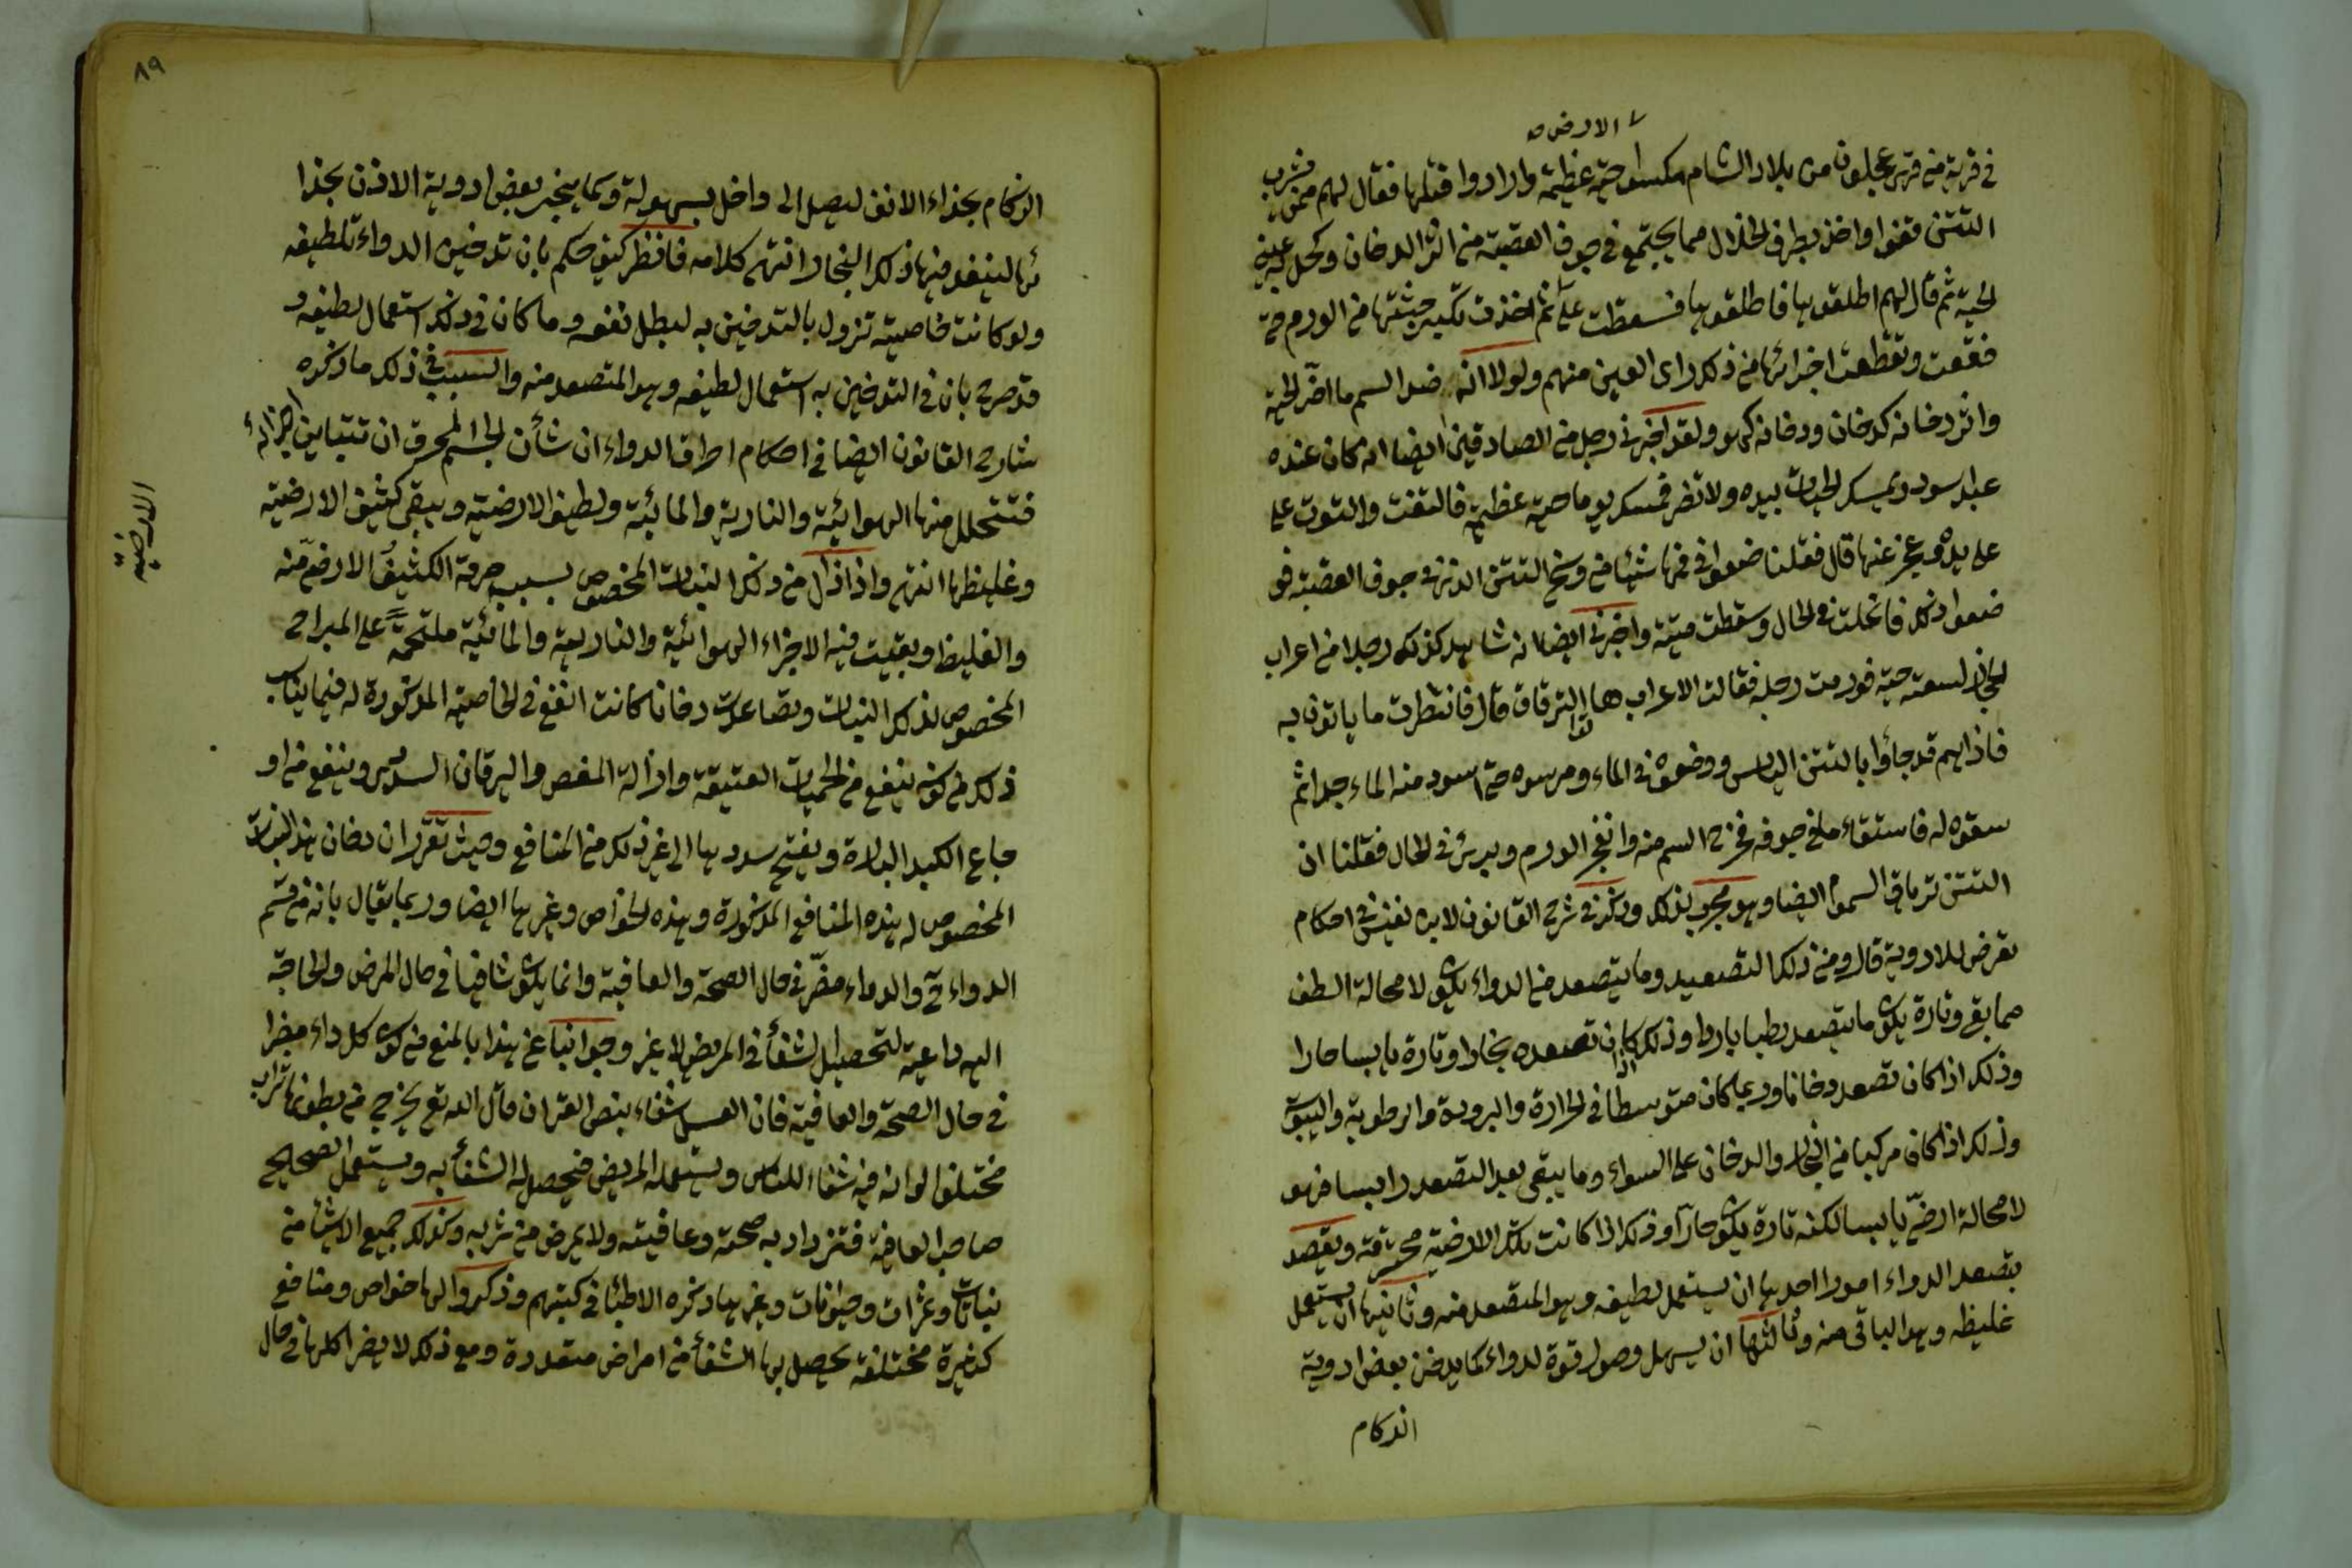 الارض صح
في قرية من قرى عجلون من بلاد الشام مسكوا حية عظيمة وارادوا قتلها فقال لهم ممن يشرب
التتن قفوا واخذ بطرف الخلال مما يجتمع في جوف القصبة من اثر الدخان وكحل به عيني
الحية ثم قال لهم اطلقوها فاطلقوها فسقطت على ثم اخذت تكبر جثتها من الورم حتى
فقعت وتقطعت اجزائها من ذلك راى العين منهم ولولا انه ضد السم ما اضر الحية
واثر دخانه كدخان ودخانه كهو ولقد اخبرني رجل من الصادقين ايضا انه كان عنده
عبد اسود يمسك الحيات بيده ولا تضر فمسك يوما حية عظيمة فالتفت والتوت على
على يده وعجز عنها قال فقلنا ضعوا في فمها شيئا من وسخ التتن الذي في جوف القصبة فو
ضعوا ذلك فانحلت في الحال وسقطت ميتة واخبرني ايضا انه شاهد كذلك رجلا من اعراب
الحجاز لسعته حية فورمت رجله فقالت الاعراب هاتوا الترياق قال فانتظرت ما ياتون به
فاذا هم قد جاؤا بالتتن اليابس ووضعوه في الماء ومرسوه حتى اسود منه الماء جدا ثم
سقوه له فاستقاء ما في جوفه فخرج السم منه وانفجر الورم وبرئ في الحال فقلنا ان
التتن ترياق السموم ايضا وهو مجرب لذلك وذكر في شرح القانون لابن نفيس في احكام
تعرض للادوية قال ومن ذلك التصعيد وما يتصعد من الدواء يكون لا محالة الطف
مما بقي وتارة يكون ما يتصعد رطبا باردا وذلك اذا كان تصعده بخارا وتارة يابسا حارا
وذلك اذا كان تصعد دخانا وربما كان متوسطا في الحرارة والبرودة والرطوبة واليبوسة
وذلك اذا كان مركبا من البخار والدخان على السواء وما يبقى بعد التصعد راسبا فهو
لا محالة ارضي يابسا لكنه تارة يكون حارا وذلك اذا كانت تلك الارضية محترقة ويقصد
بتصعد الدواء امورا احدها ان يستعمل لطيفه وهو المتصعد منه وثانيها ان يستعمل
غليظه وهو الباقي منه وثالثها ان يسهل وصول قوة الدواء كما يدخن بعض ادوية
الزكام
٨٩
الزكام بحذاء الانف ليصل الى داخل بسهولة وكما يبخر بعض ادوية الاذن بحذا
ئها لينفذ منها ذلك البخار انتهى كلامه فانظر كيف حكم بان تدخين الدواء تلطيفه
ولو كانت خاصيته تزول بالتدخين به لبطل نفعه وما كان في ذلك استعمال لطيفه و
قد صرح بان في التدخين به استعمال لطيفه وهو المتصعد منه والسبب في ذلك ما ذكره
شارح القانون ايضا في احكام احراق الدواء ان شأن الجسم المحرق ان تتباين اجزائه
فتتحلل منها الهوائية والنارية والمائية ولطيف الارضية ويبقى كثيف الارضية
وغليظها انتهى واذا زال من ذلك النبات المخصوص بسبب حرقه الكثيف الارضي منه
الارضية
والغليظ وبقيت فيه الاجزاء الهوائية والنارية والمائية ملتحمة على المزاج
المخصوص لذلك النبات وتصاعدت دخانا كانت انفع في الخاصية المذكورة له فيما يناسب
ذلك من كونه ينفع من الحميات العتيقة وازالة المغص واليرقان السددي وينفع من او
جاع الكبد الباردة ويفتح سددها الى غير ذلك من المنافع وحيث تقرر ان دخان هذا النبات
المخصوص له هذه المنافع المذكورة وهذه الخواص وغيرها ايضا وربما يقال بانه من قسم
الدواء والدواء مضر في حال الصحة والعافية وانما يكون شافيا في حال المرض والحاجة
اليه داعية لتحصيل الشفأ في المريض لا غير وجوابنا عن هذا بالمنع من كون كل داء مضرا
في حال الصحة والعافية فان العسل شفاء بنص القران قال الله تع يخرج من بطونها شراب
مختلف الوانه فيه شفاء للناس ويستعمله المريض فيحصل له الشفأ به ويستعمل الصحيح
صاحب العافية فتزداد به صحته وعافيته ولا يمرض من شربه وكذلك جميع الاشياء من
نباتات وثمرات وحيوانات وغيرها ذكره الاطباء في كتبهم وذكروا لها خواص ومنافع
كثيرة مختلفة يحصل بها الشفأ من امراض متعددة ومع ذلك لا يضر اكلها في حال